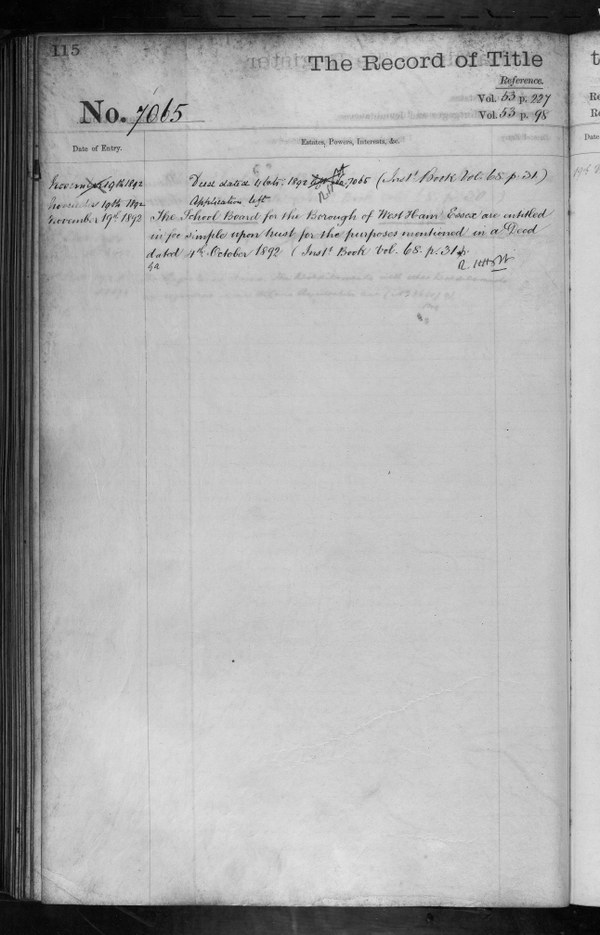 115
The Record of Title
Reference.
No. 7065
Vol. 53 p. 227
Vol. 53 p. 98
Date of Entry.
Estates, Powers, Interests, &c.
November 19th 1892 Deed dated 4 Octr. 1892 7065 (Inst. Book Vol. 68. p. 31.)
November 19th 1892 Application left
November 19th 1892 The School Board for the Borough of West Ham Essex are entitled
in fee simple upon trust for the purposes mentioned in a Deed
dated 4th October 1892 (Inst. Book Vol. 68. p. 31.)